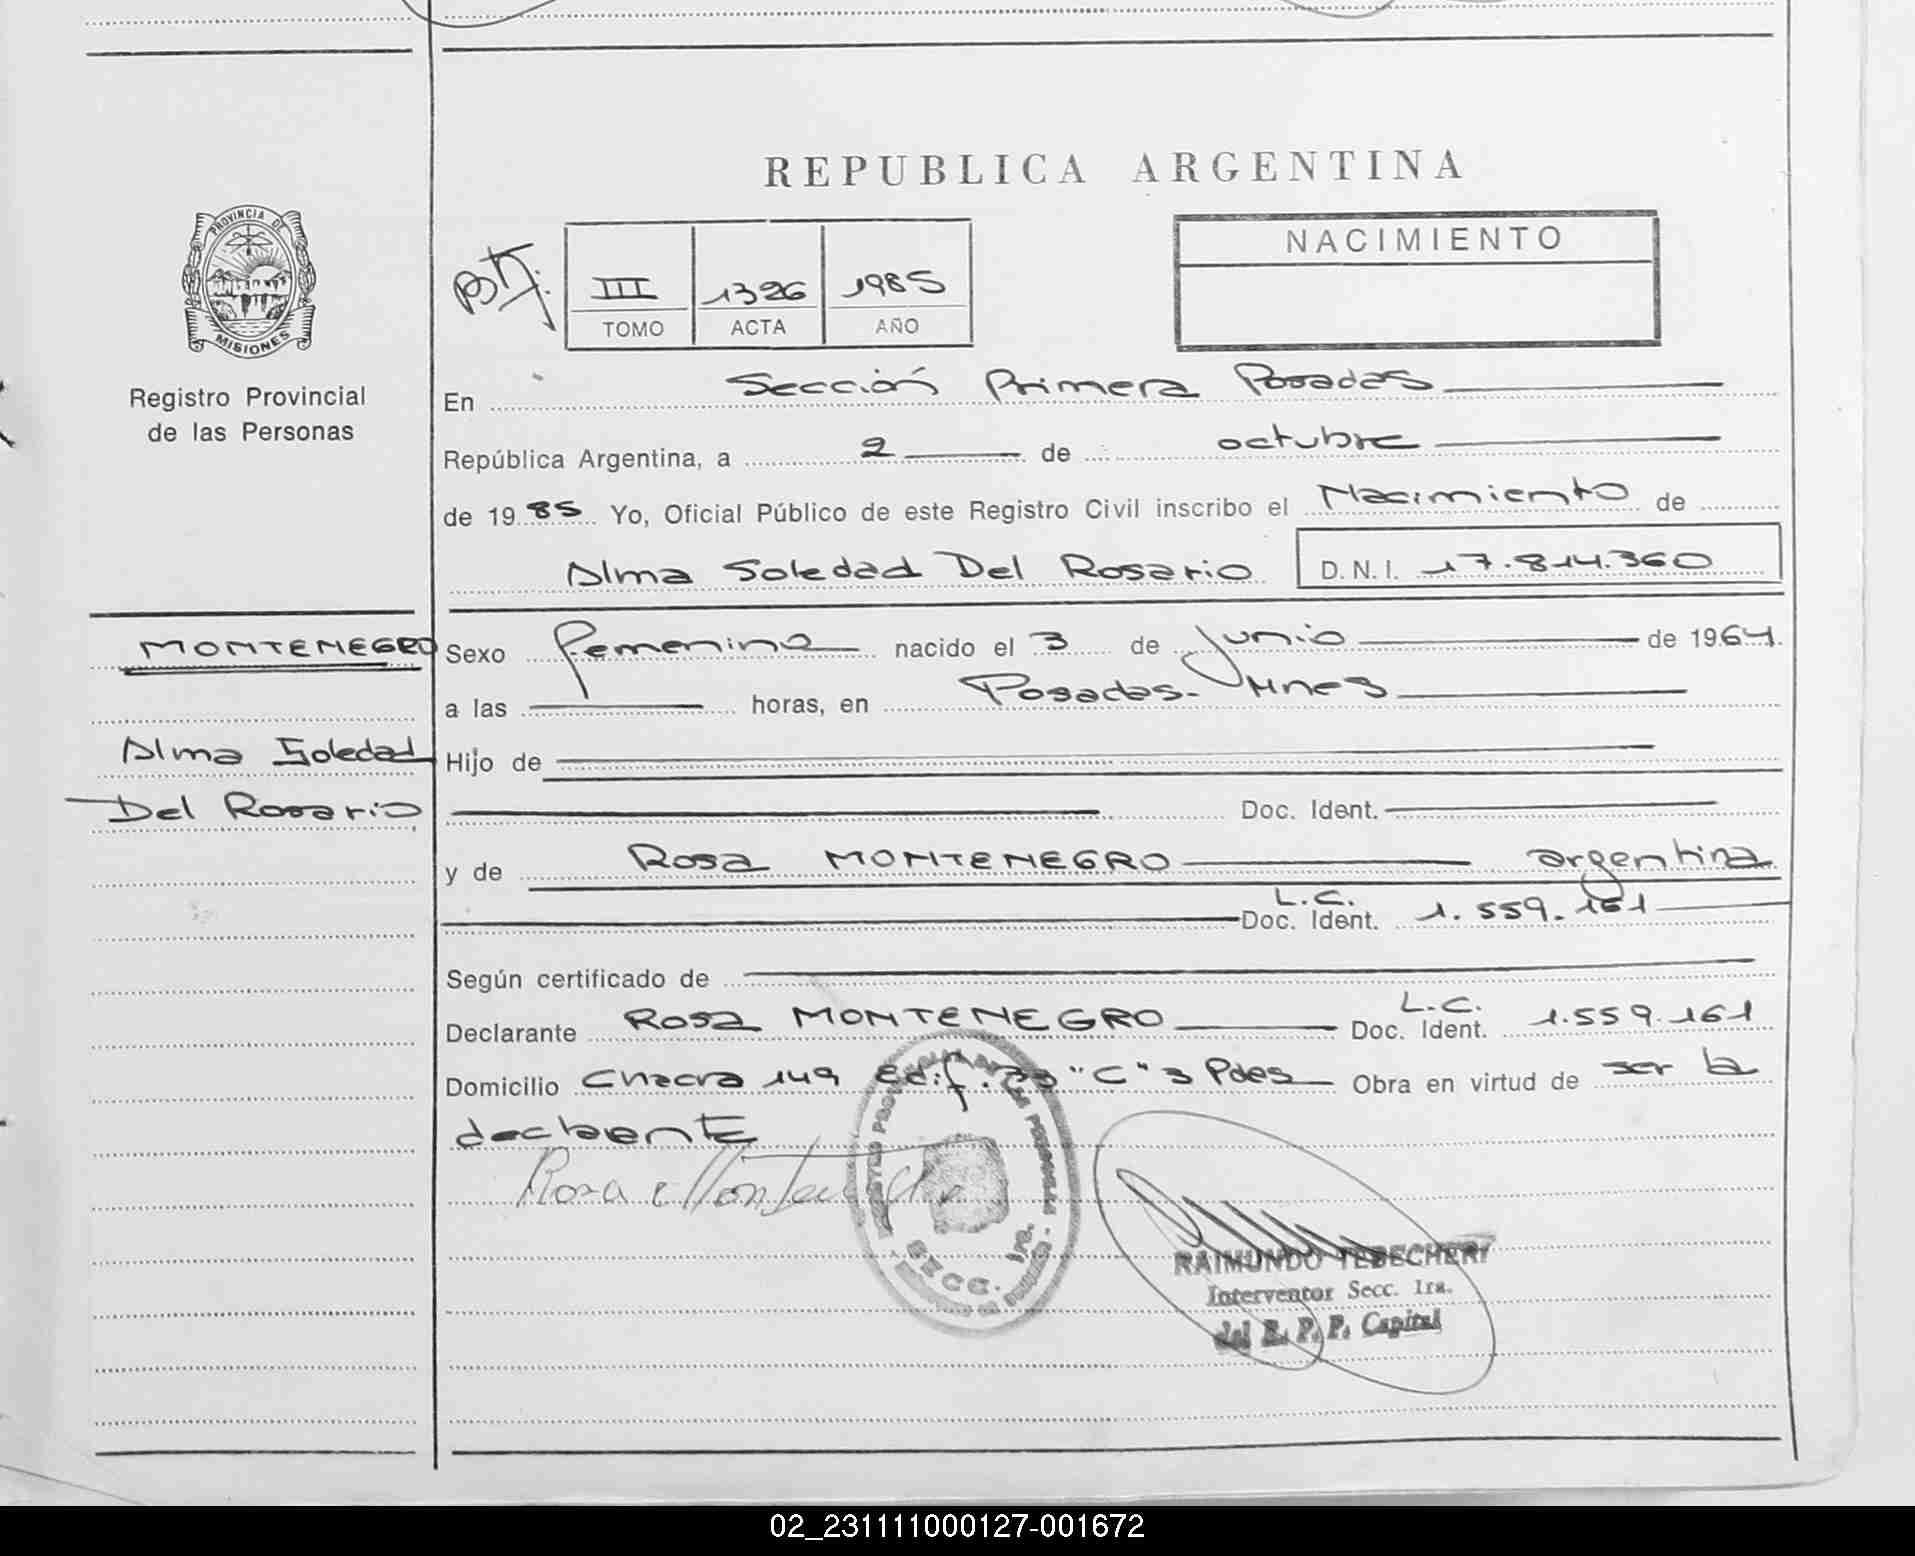 REPUBLICA ARGENTINA
PROVINCIA DE
MISIONES
Registro Provincial
de las Personas
III 1326 1985
TOMO ACTA AÑO
NACIMIENTO
En Sección Primera Posadas
República Argentina, a 2 de octubre
de 1985 Yo, Oficial Público de este Registro Civil inscribo el Nacimiento de
Alma Soledad Del Rosario D.N.I. 17.814.360
MONTENEGRO
Alma Soledad
Del Rosario
Sexo femenino nacido el 3 de Junio de 1964.
a las horas, en Posadas- Mnes
Hijo de
Doc. Ident.
y de Rosa MONTENEGRO argentina
L.C.
Doc. Ident. 1.559.161
Según certificado de
Declarante Rosa MONTENEGRO L.C. Doc. Ident. 1.559.161
Domicilio Chacra 149 Edif. "C" 3 Pdas Obra en virtud de ser la
declarante
Rosa Montenegro
SECC. 1ra.
RAIMUNDO TEBECHERY
Interventor Secc. 1ra.
del R. P. P. Capital
02_231111000127-001672